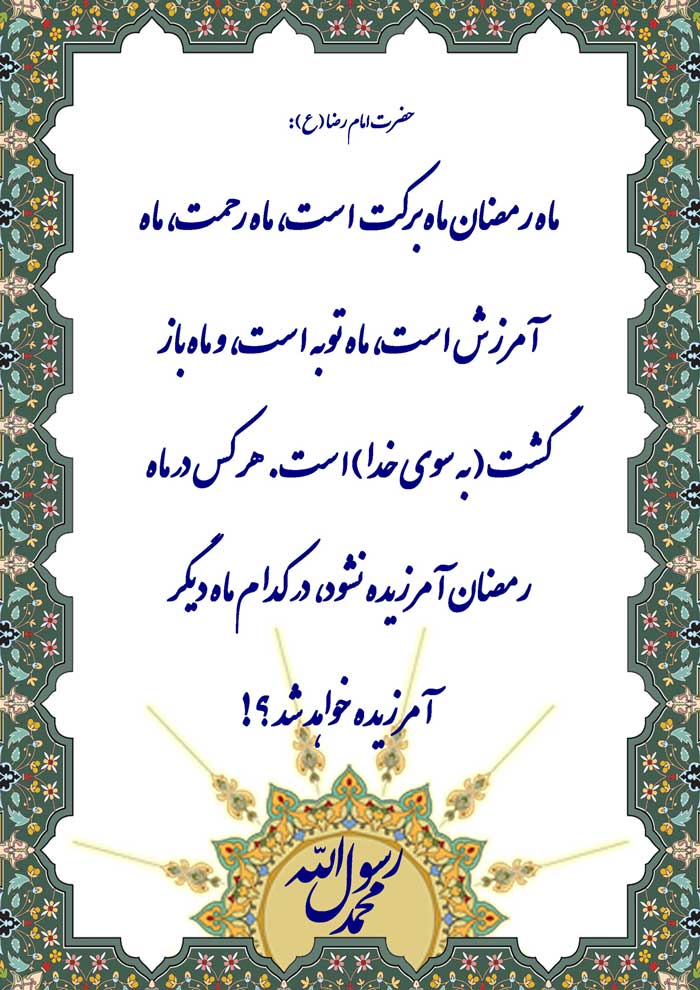 حضرت امام رضا (ع):
ماه رمضان ماه برکت است، ماه رحمت، ماه
آمرزش است، ماه توبه است، و ماه باز
گشت (به سوی خدا) است. هر کس در ماه
رمضان آمرزیده نشود، در کدام ماه دیگر
آمرزیده خواهد شد؟!
محمد رسول الله